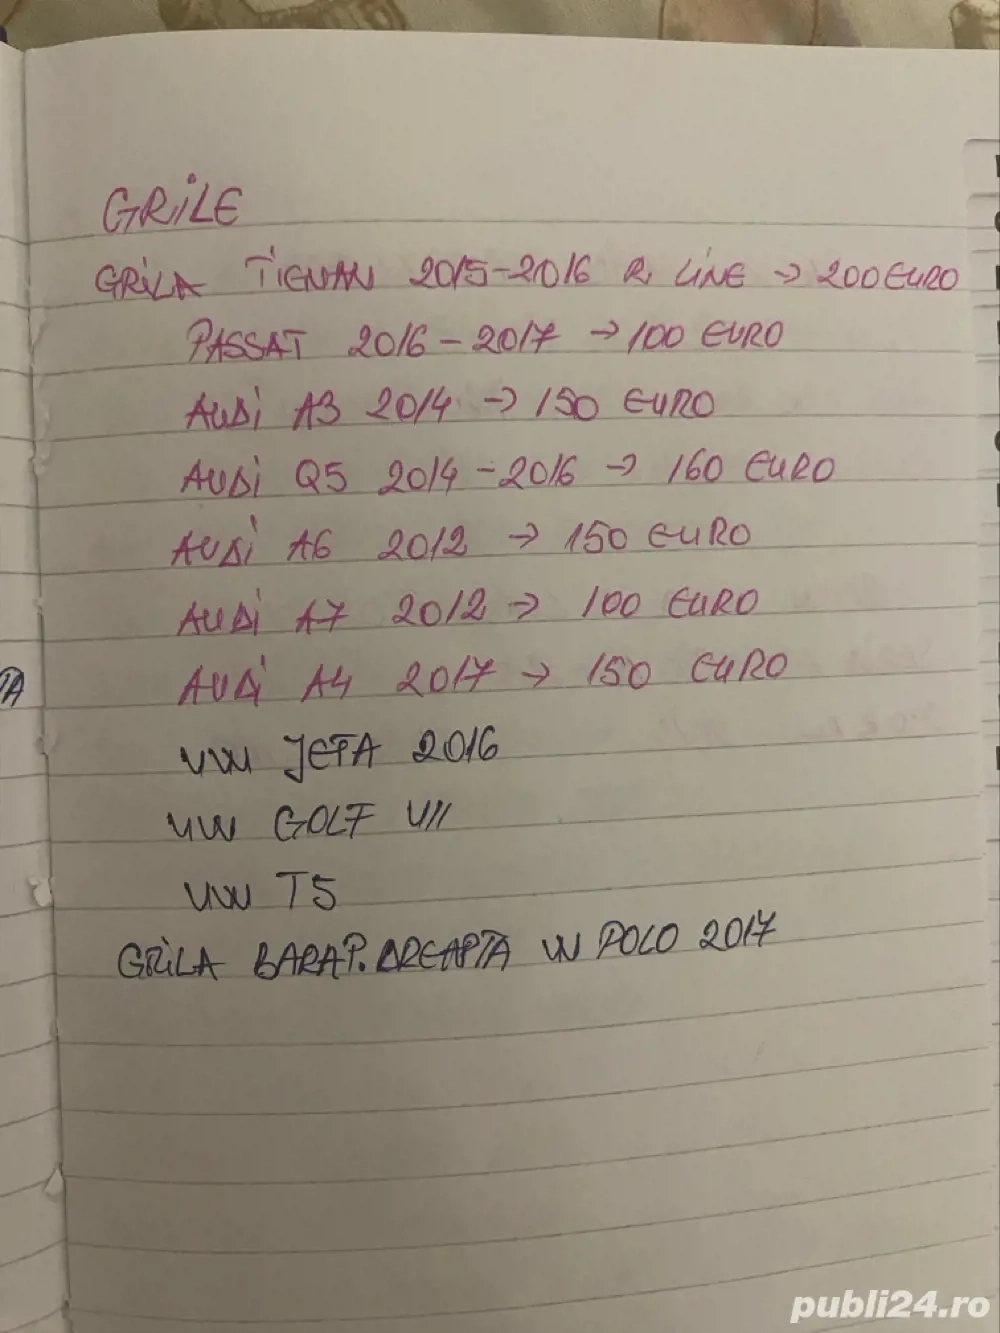 GRiLE
GRiLA TiGUAN 2015-2016 R LiNE → 200 EURO
PASSAT 2016 - 2017 → 100 EURO
AUDi A3 2014 → 150 EURO
AUDi Q5 2014 - 2016 → 160 EURO
AUDi A6 2012 → 150 EURO
AUDi A7 2012 → 100 EURO
AUDi A4 2017 → 150 EURO
VW JETA 2016
VW GOLF VII
VW T5
GRiLA BARA P. DREAPTA VW POLO 2017
TA
publi24.ro